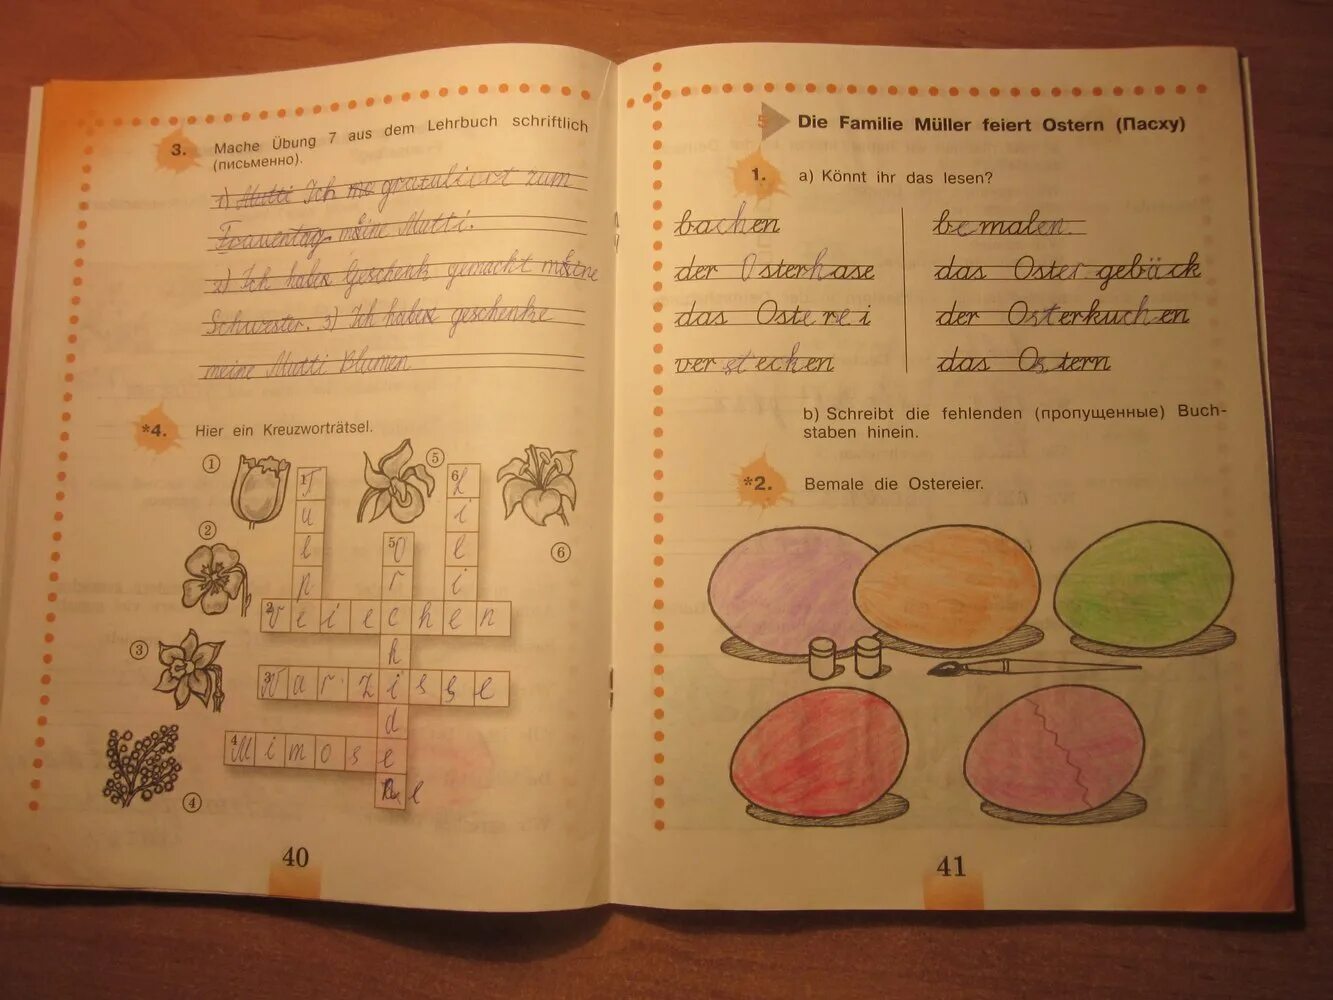 3. Mache Übung 7 aus dem Lehrbuch schriftlich
(письменно).
1) Mutti Ich me gratuliert zum
Frauentag meine Mutti.
2) Ich habe Geschenk gemacht meine
Schwester. 3) Ich habe geschenke
meine Mutti Blumen
*4. Hier ein Kreuzworträtsel.
1 2 3 4 5 6
1 Tulpe
2 Veiechen
3 Narzisse
4 Mimose
5 Orchidee
6 Lilie
40
5 Die Familie Müller feiert Ostern (Пасху)
1. a) Könnt ihr das lesen?
bachen
der Osterhase
das Osterei
verstechen
bemalen
das Ostergebäck
der Osterkuchen
das Ostern
b) Schreibt die fehlenden (пропущенные) Buch-
staben hinein.
*2. Bemale die Ostereier.
41